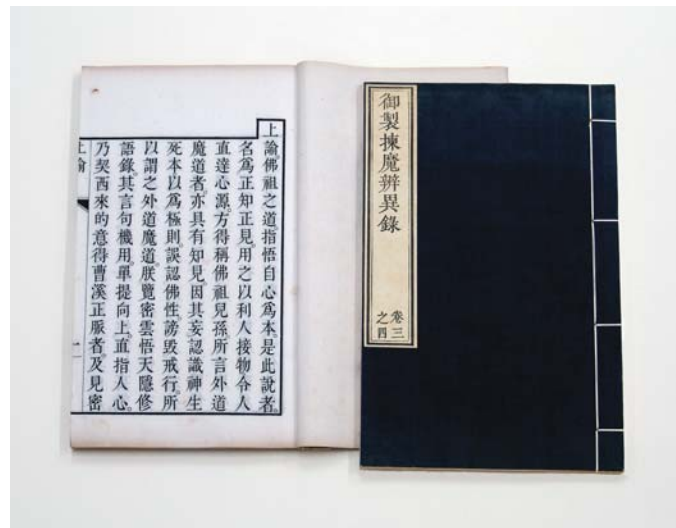 上諭佛祖之道。指悟自心爲本。是此說者。
名爲正知正見。用之以利人接物。令人
直達心源。方得稱佛祖兒孫。所言外道
魔道者。亦具有知見。因其妄認識神生
死本以爲極則。誤認佛性。謗毀戒行。所
以謂之外道魔道。朕覽密雲悟天隱修
語錄。其言句機用。單提向上。直指人心。
乃契西來的意。得曹溪正脈者。及見密
上諭
一
御製揀魔辨異錄
卷三
之四